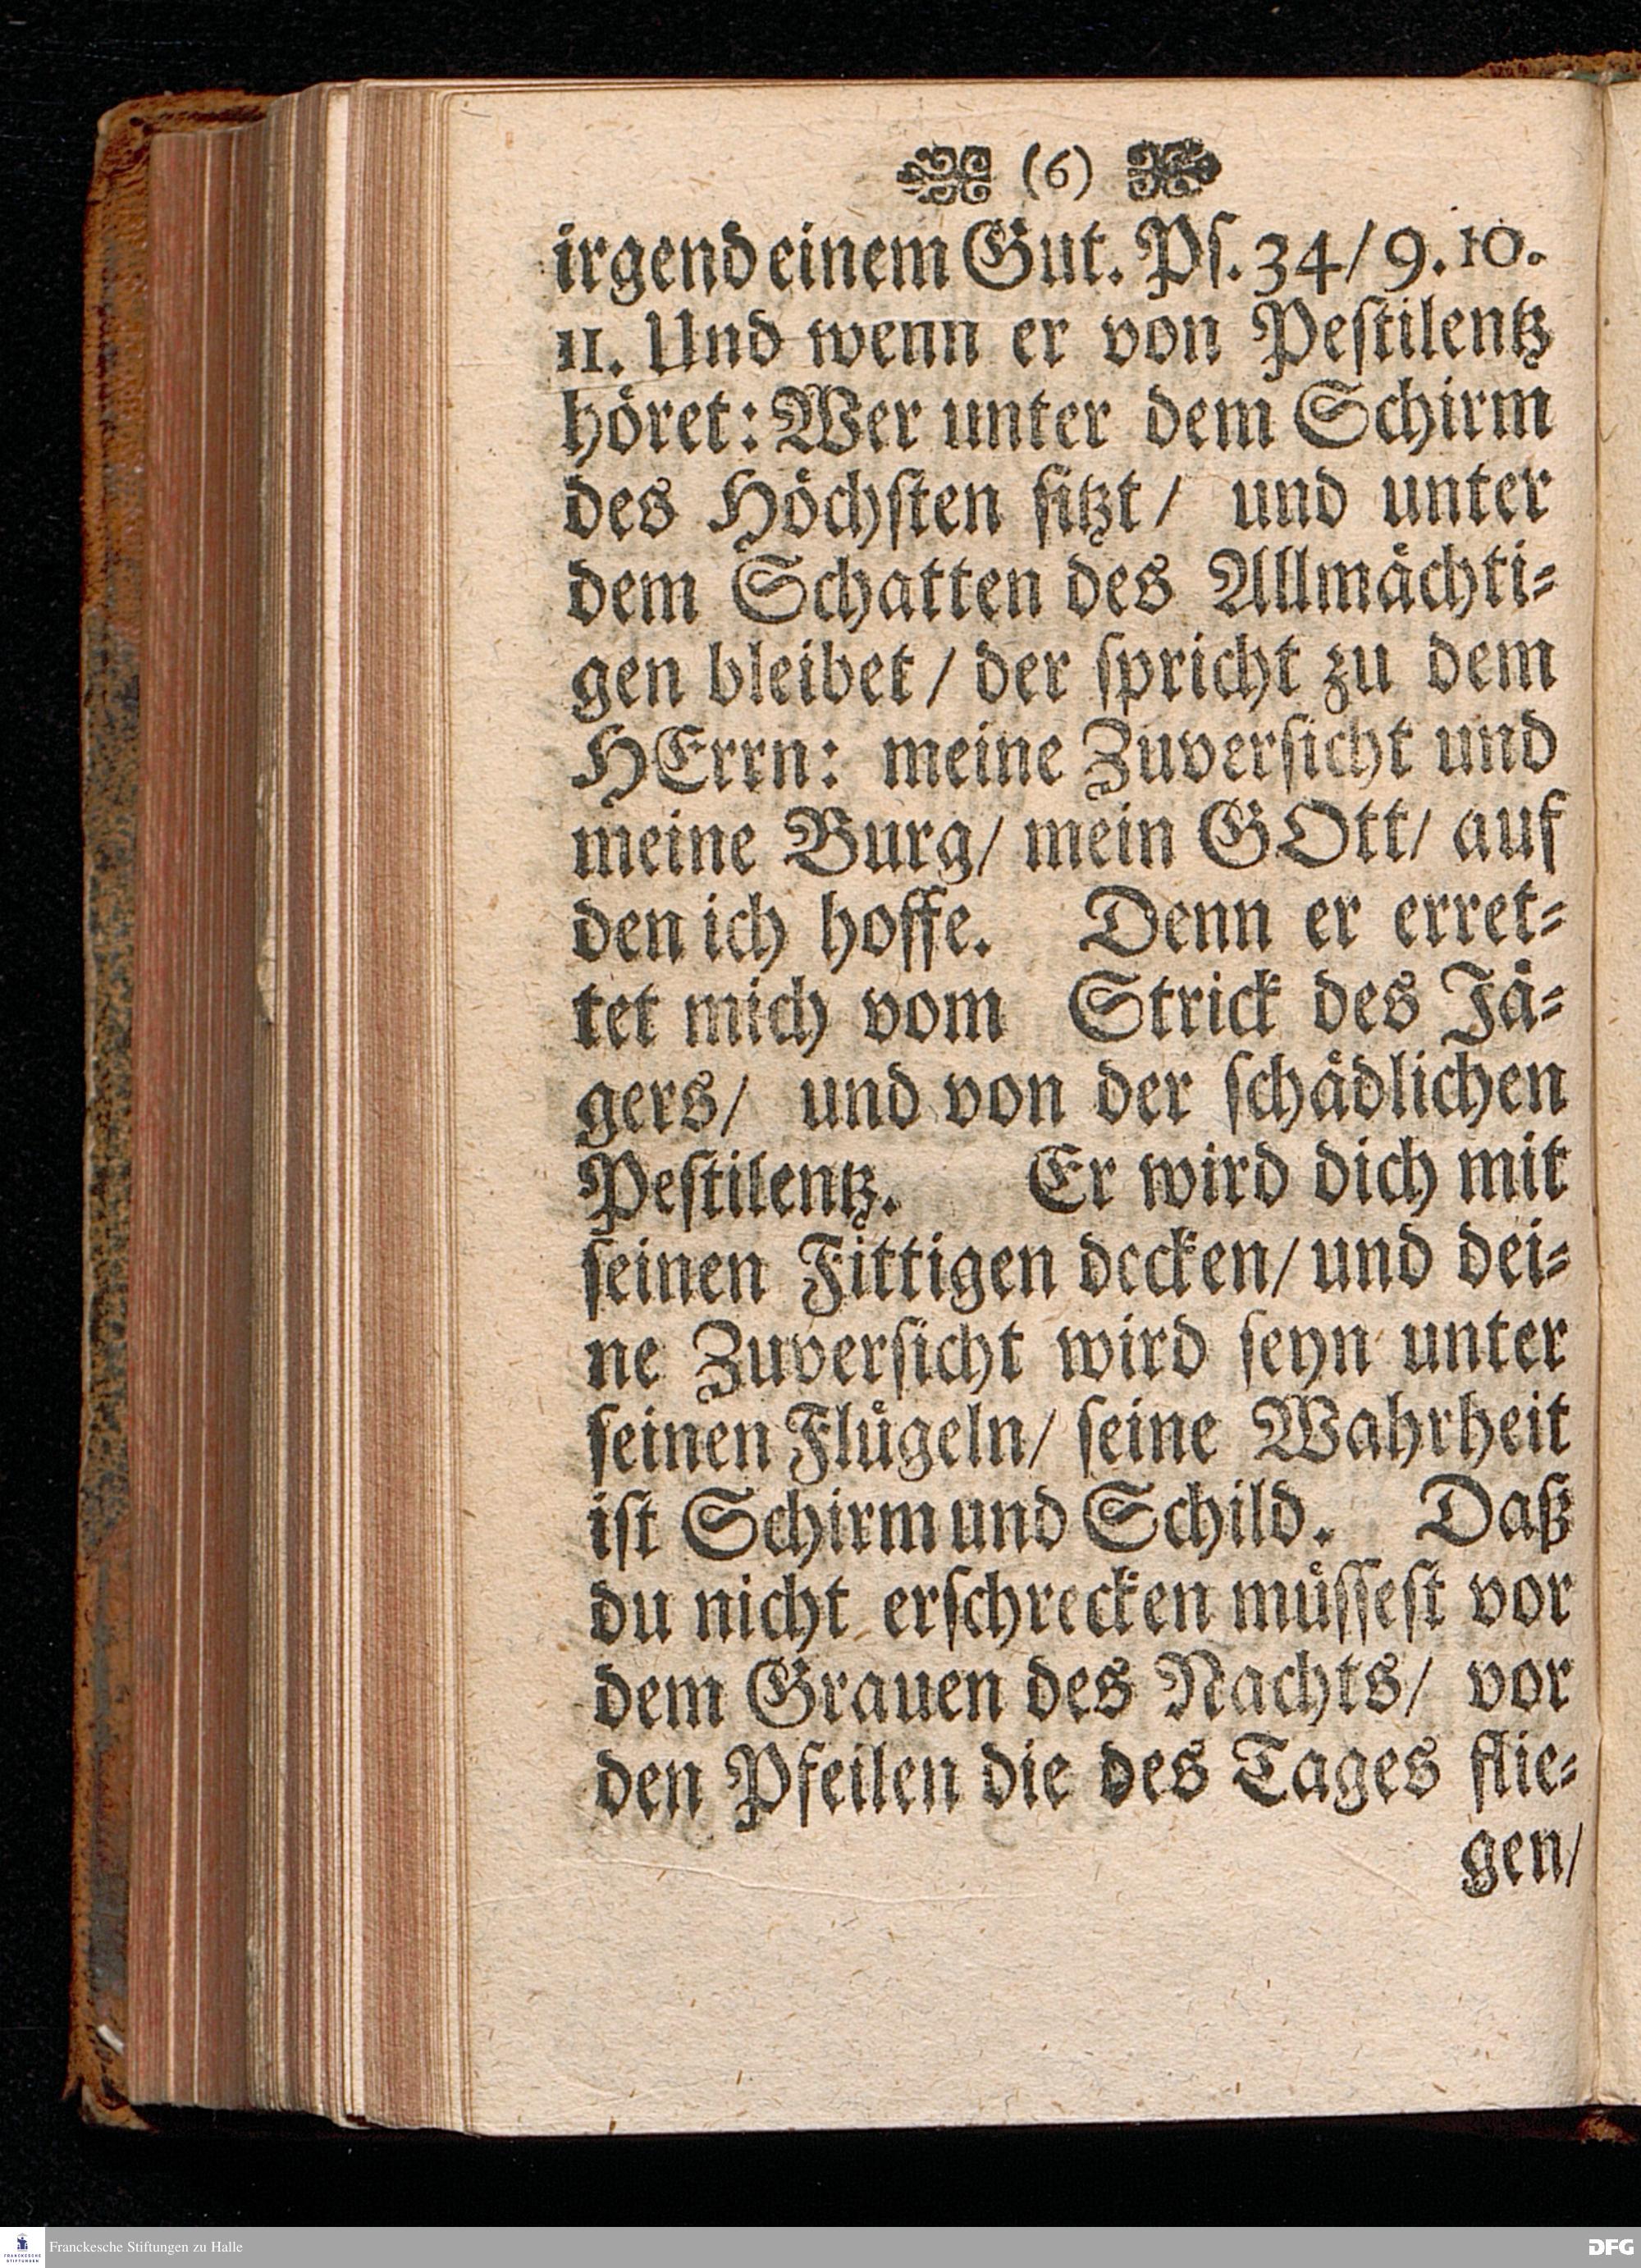 (6)
irgend einem Gut. Pſ. 34/ 9. 10.
11. Und wenn er von Peſtilentz
hoͤret: Wer unter dem Schirm
des Hoͤchſten ſitzt/ und unter
dem Schatten des Allmaͤchti⸗
gen bleibet/ der ſpricht zu dem
HErrn: meine Zuverſicht und
meine Burg/ mein GOtt/ auf
den ich hoffe. Denn er erret⸗
tet mich vom Strick des Jaͤ⸗
gers/ und von der ſchaͤdlichen
Peſtilentz. Er wird dich mit
ſeinen Fittigen decken/ und dei⸗
ne Zuverſicht wird ſeyn unter
ſeinen Fluͤgeln/ ſeine Wahrheit
iſt Schirm und Schild. Daß
du nicht erſchrecken muͤſſeſt vor
dem Grauen des Nachts/ vor
den Pfeilen die des Tages flie⸗
gen/
Franckesche Stiftungen zu Halle
FRANCKESCHE STIFTUNGEN
DFG